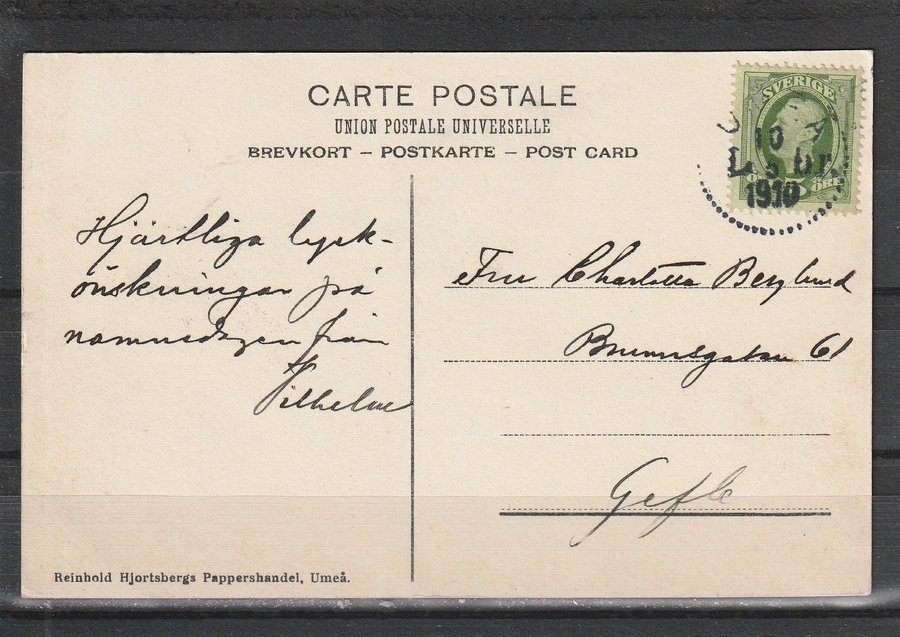 CARTE POSTALE
UNION POSTALE UNIVERSELLE
BREVKORT – POSTKARTE – POST CARD
SVERIGE
ÖRE
10
L br.
1910
Hjärtliga lyck-
önskningar på
namnsdagen från
Vilhelm
Fru Charlotta Berglund
Brunnsgatan 61
Gefle
Reinhold Hjortsbergs Pappershandel, Umeå.